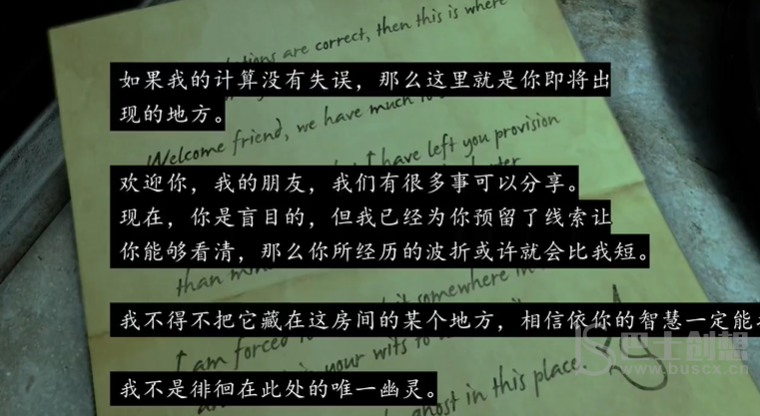 ations are correct, then this is where
如果我的计算没有失误，那么这里就是你即将出
现的地方。
Welcome friend, we have much to
I have left you provision
欢迎你，我的朋友，我们有很多事可以分享。
现在，你是盲目的，但我已经为你预留了线索让
你能够看清，那么你所经历的波折或许就会比我短。
than
somewhere in
我不得不把它藏在这房间的某个地方，相信依你的智慧一定能
I am forced
in your wits to
我不是徘徊在此处的唯一幽灵。
ghost in this place.
巴士创想
www.buscx.cn